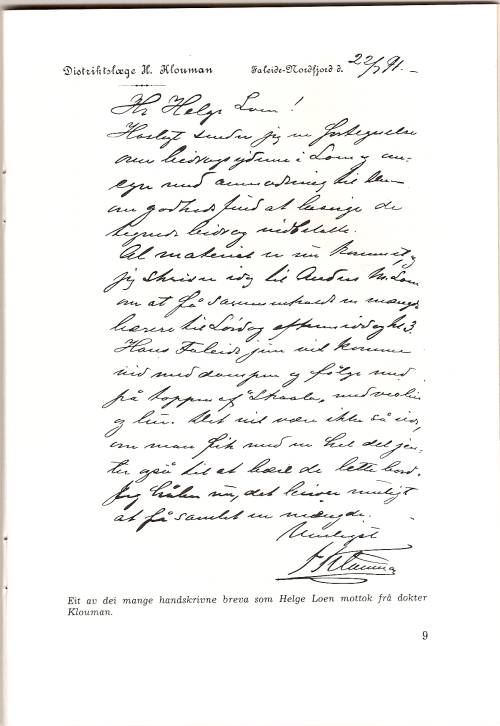 Distriktslæge H. Klouman Faleide-Nordfjord d. 22/7 91.-
Hr Helge Loen!
Hoslagt sender jeg en fortegnelse
over bidragsyderne i Loen og om-
egn med anmodning til Dem
om godhedsfuld at besørge de
tegnede bidrag indbetalte.
Al materiel er nu kommet, og
jeg skriver idag til Anders M. Loen
om at få sammenkaldt en mængde
bærere til Lørdag eftermiddag kl 3.
Hans Faleide jun vil komme
ind med dampen og følge med
på toppen af "Skaala" med violin
og lur. Det vil være ikke så
om man fik med en hel del jen-
ter også til at bære de lette bord.
Jeg håber nu, det bliver muligt
at få samlet en mængde.
Venligst
H Klouman
Eit av dei mange handskrivne breva som Helge Loen mottok frå dokter
Klouman.
9